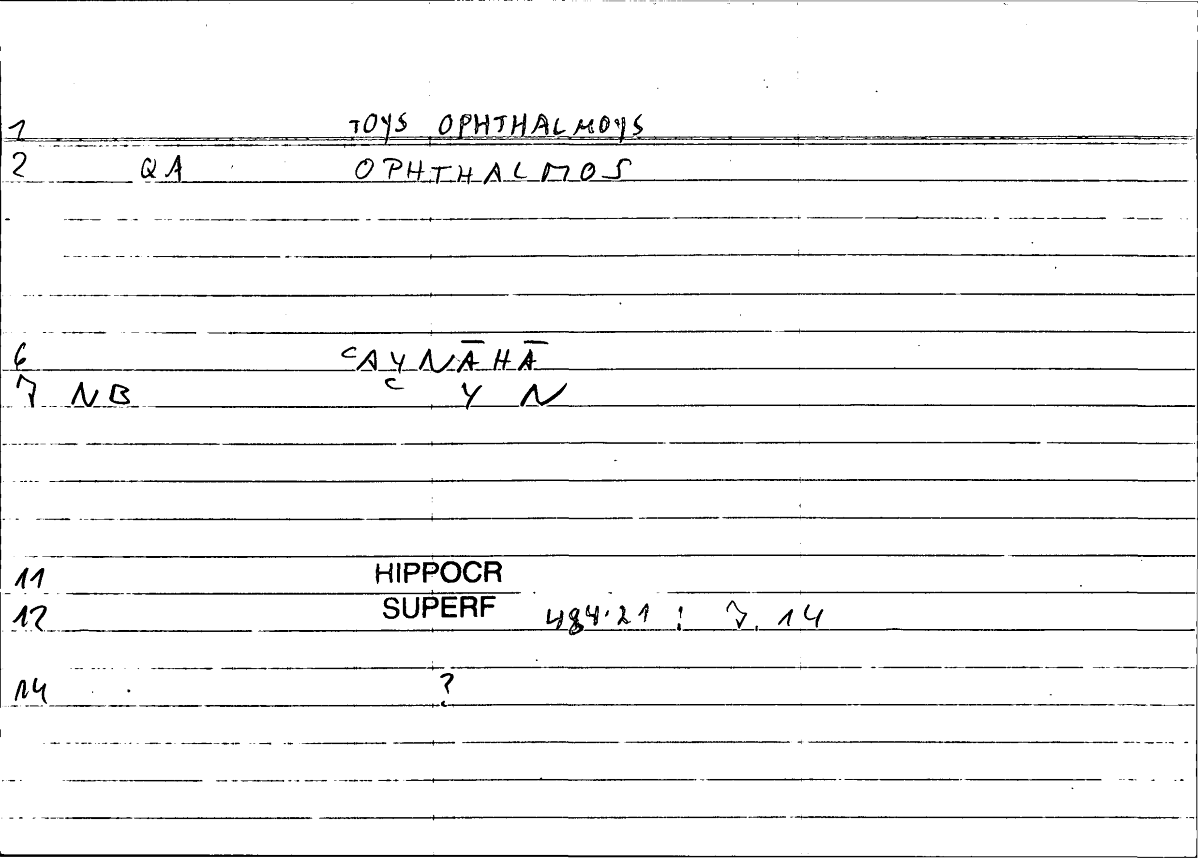 1 TOYS OPHTHALMOYS
2 QA OPHTHALMOS
6 ᶜAYNĀHĀ
7 NB ᶜ Y N
11 HIPPOCR
12 SUPERF 484.21 ; 7. 14
14 ?